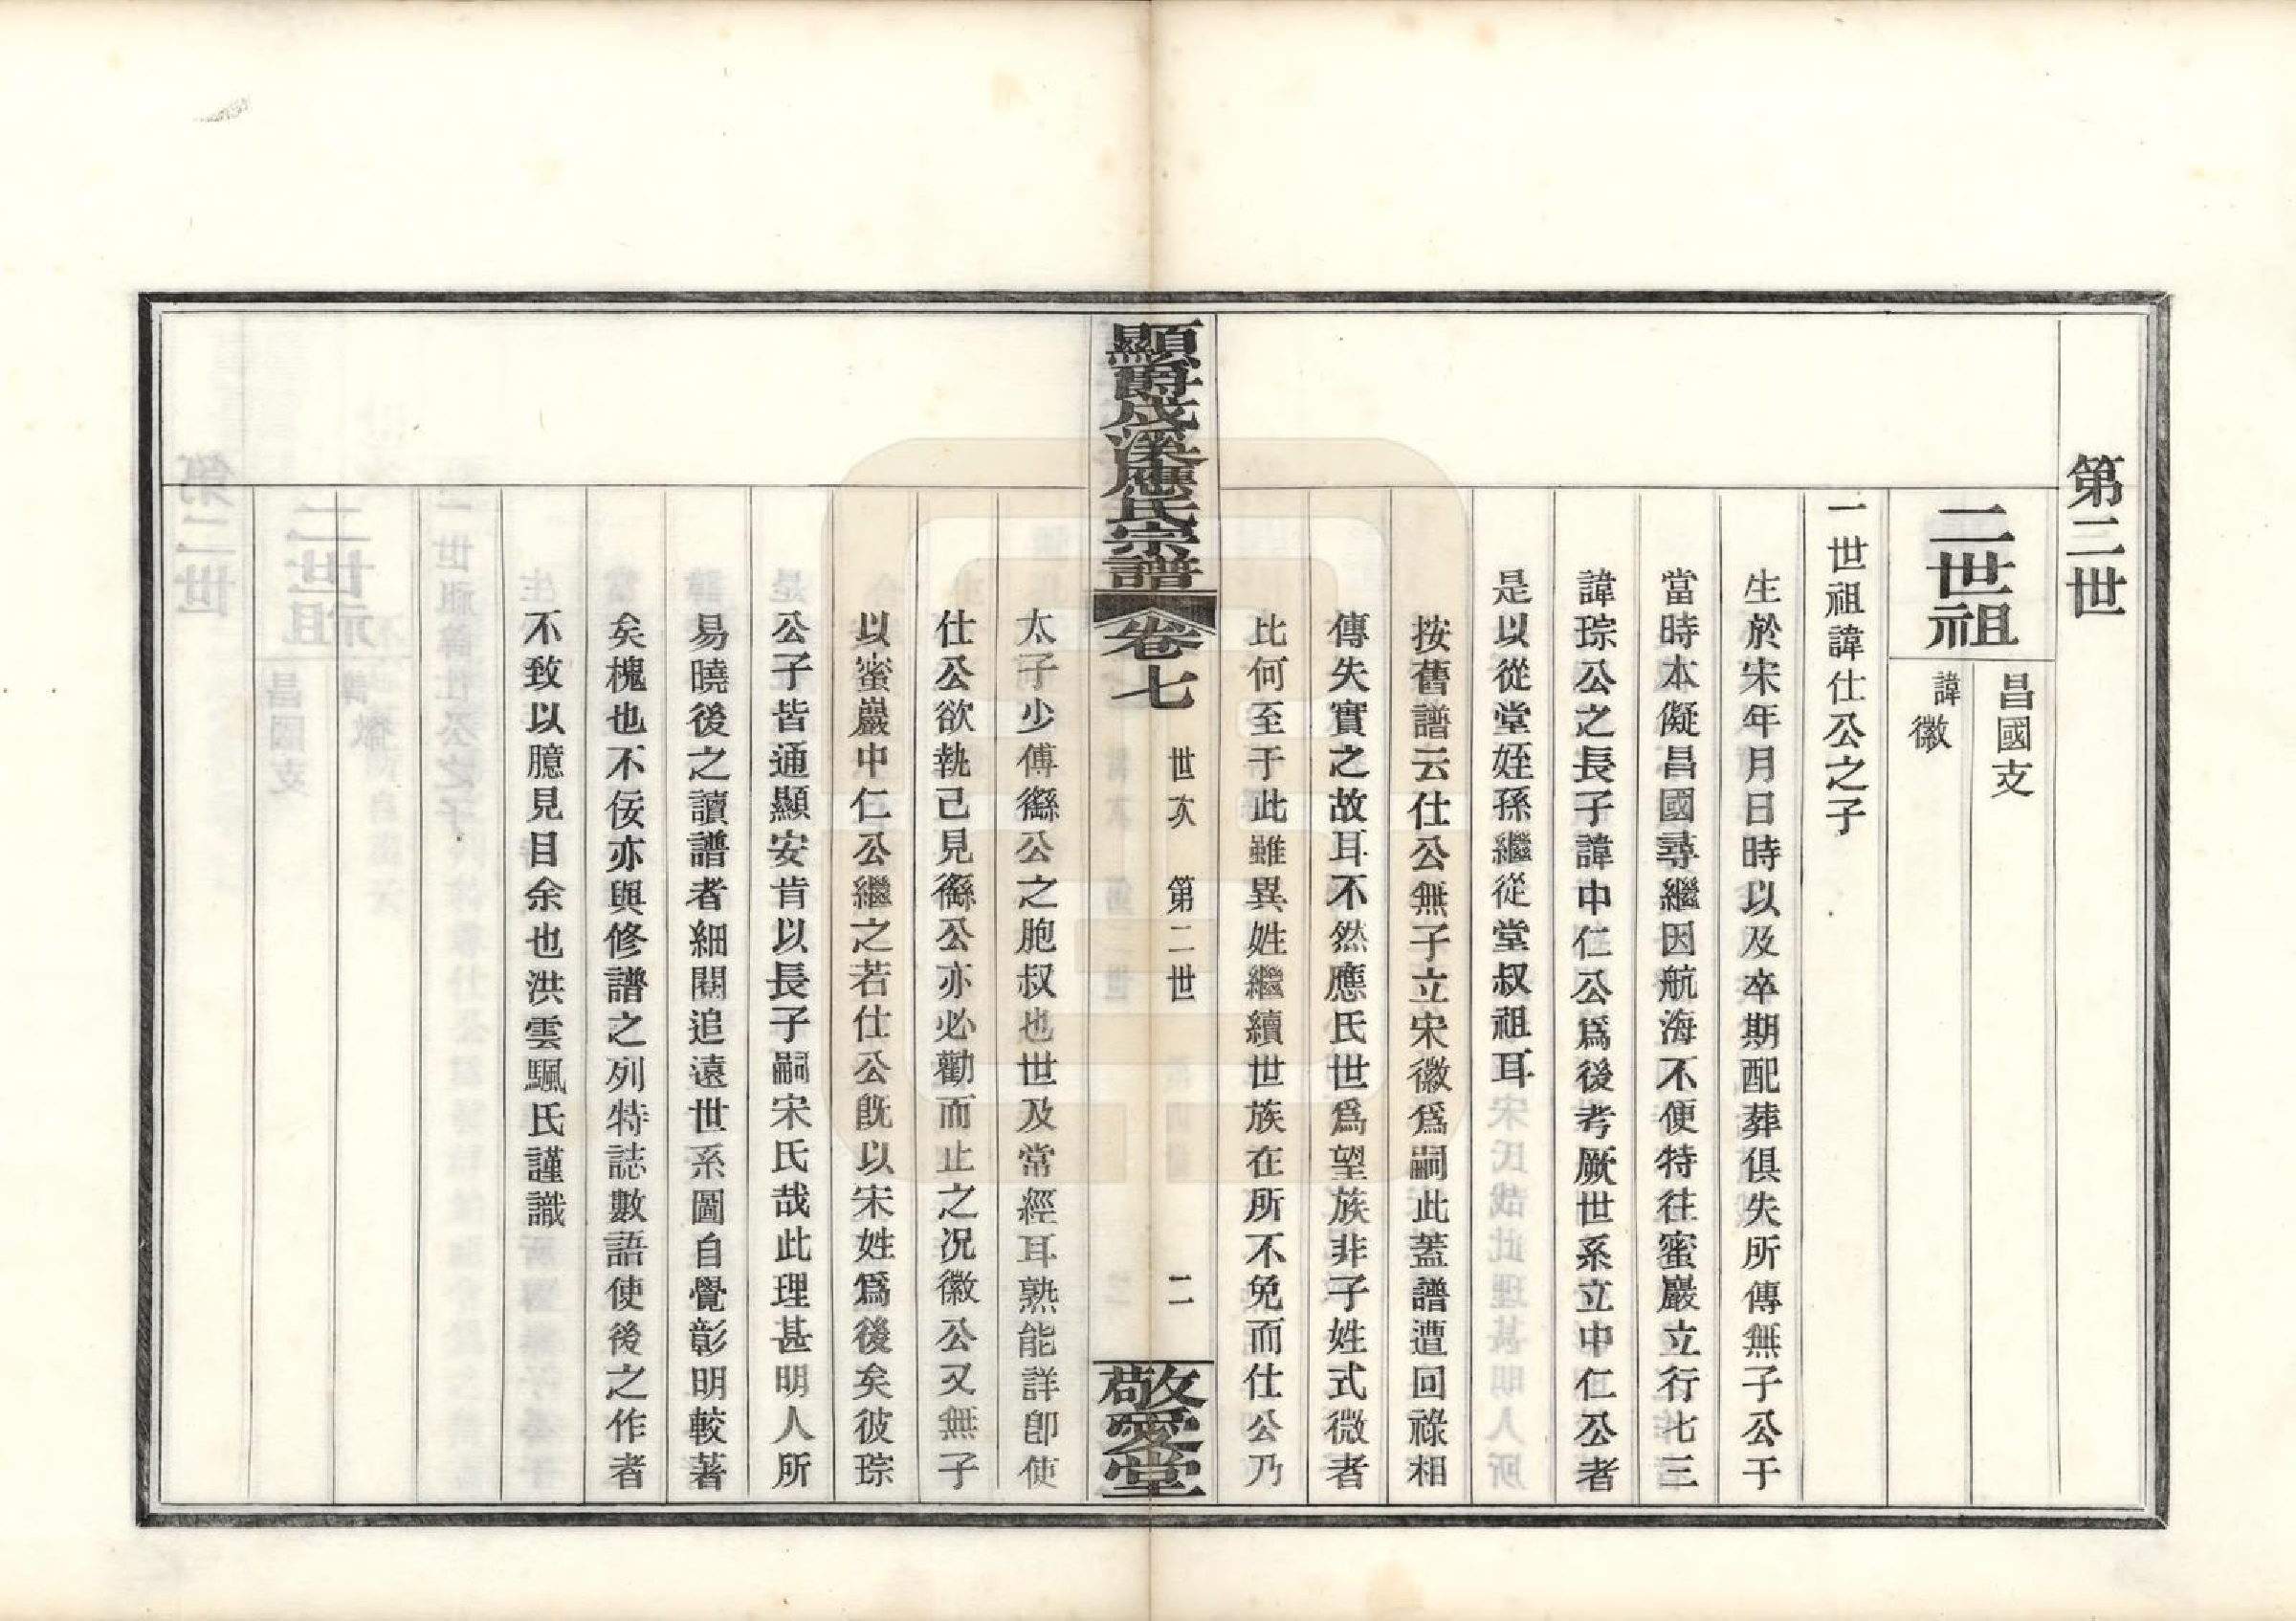 第二世
昌國支
二世祖
諱徽
一世祖諱仕公之子
生於宋年月日時以及卒期配葬俱失所傳無子公于
當時本儗昌國尋繼因航海不便特往蜜巖立行七三
諱琮公之長子諱中仁公爲後考厥世系立中仁公者
是以從堂姪孫繼從堂叔祖耳
按舊譜云仕公無子立宋徽爲嗣此蓋譜遭回祿相
傳失實之故耳不然應氏世爲望族非子姓式微者
比何至于此雖異姓繼續世族在所不免而仕公乃
顯爵成溪應氏宗譜
卷七
世次 第二世
二
敬愛堂
太子少傅繇公之胞叔也世及常經耳熟能詳卽使
仕公欲執己見繇公亦必勸而止之况徽公又無子
以蜜巖中仁公繼之若仕公旣以宋姓爲後矣彼琮
公子皆通顯安肯以長子嗣宋氏哉此理甚明人所
易曉後之讀譜者細閱追遠世系圖自覺彰明較著
矣槐也不佞亦與修譜之列特誌數語使後之作者
不致以臆見目余也洪雲颿氏謹識